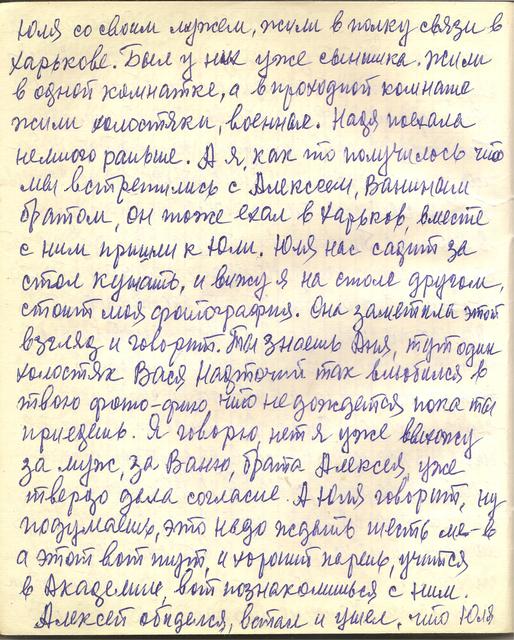 Юля со своим мужем, жили в полку связи в
Харькове. Был у них уже сынишка. Жили
в одной комнатке, а в проходной комнате
жили холостяки, военные. Надя поехала
немного раньше. А я, как то получилось что
мы встретились с Алексеем, Ваниным
братом, он тоже ехал в Харьков, вместе
с ним пришли к Юли. Юля нас садит за
стол кушать, и вижу я на столе другом,
стоит моя фотография. Она заметила этот
взгляд и говорит. Ты знаешь Аня, тут один
холостяк Вася Надточий так влюбился в
твою фото-фию, что не дождется пока ты
приедешь. Я говорю, нет я уже выхожу
за муж, за Ваню, брата Алексея, уже
твердо дала согласие. А Юля говорит, ну
подумаешь, это надо ждать шесть ме-в
а этот вот тут, и хороший парень, учится
в Академии, вот познакомишься с ним.
Алексей обиделся, встал и ушел, что Юля